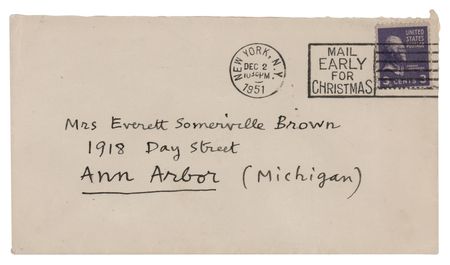 NEW YORK, N.Y.
DEC 2
1951
MAIL
EARLY
FOR
CHRISTMAS
UNITED
STATES
POSTAGE
3 CENTS 3
Mrs Everett Somerville Brown
1918 Day Street
Ann Arbor (Michigan)